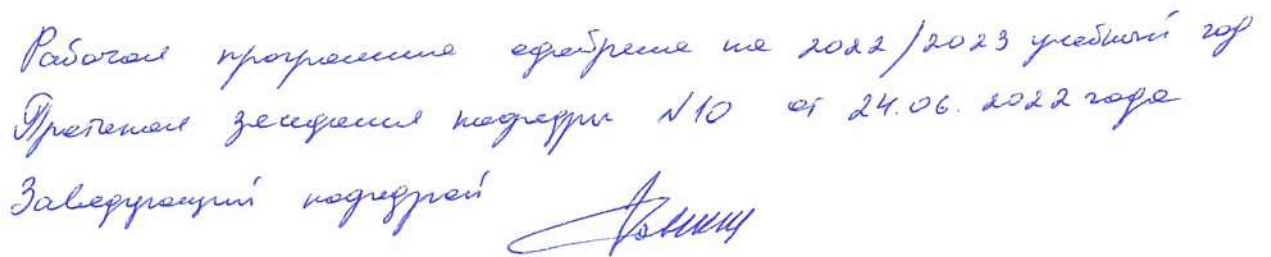 Рабочая программа одобрена на 2022/2023 учебный год
Протокол заседания кафедры №10 от 24.06.2022 года
Заведующий кафедрой